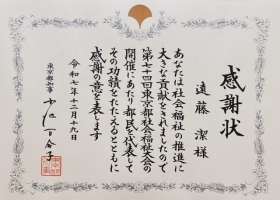 感謝状
遠藤 潔様
あなたは社会福祉の推進に
大きな貢献をされましたので
第七十四回東京都社会福祉大会の
開催にあたり都民を代表して
その功績をたたえるとともに
感謝の意を表します
令和七年十二月十九日
東京都知事
小池百合子